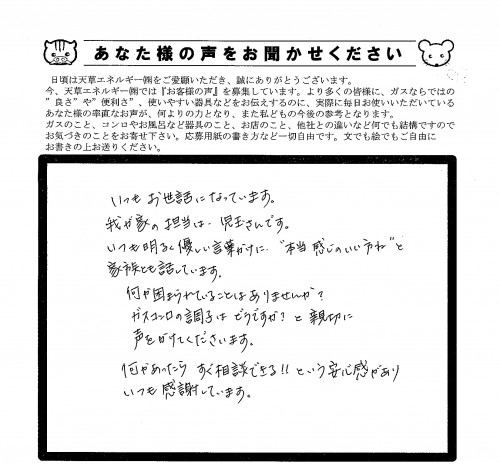 あなた様の声をお聞かせください
日頃は天草エネルギー㈱をご愛顧いただき、誠にありがとうございます。
今、天草エネルギー㈱では『お客様の声』を募集しています。より多くの皆様に、ガスならではの
"良さ"や"便利さ"、使いやすい器具などをお伝えするのに、実際に毎日お使いいただいている
あなた様の率直なお声が、何よりの力となり、また私どもの今後の参考となります。
ガスのこと、コンロやお風呂など器具のこと、お店のこと、他社との違いなど何でも結構ですので
お気づきのことをお寄せ下さい。応募用紙の書き方など一切自由です。文でも絵でもご自由に
お書きの上お送りください。
いつも お世話になっています。
我が家の担当は、児玉さんです。
いつも明るく優しい言葉がけに、"本当 感じのいい方ね"と
家族とも話しています。
何か困まられていることはありませんか?
ガスコンロの調子は どうですか? と 親切に
声をかけてくださいます。
何かあったら すぐ相談できる!! という安心感があり
いつも 感謝しています。